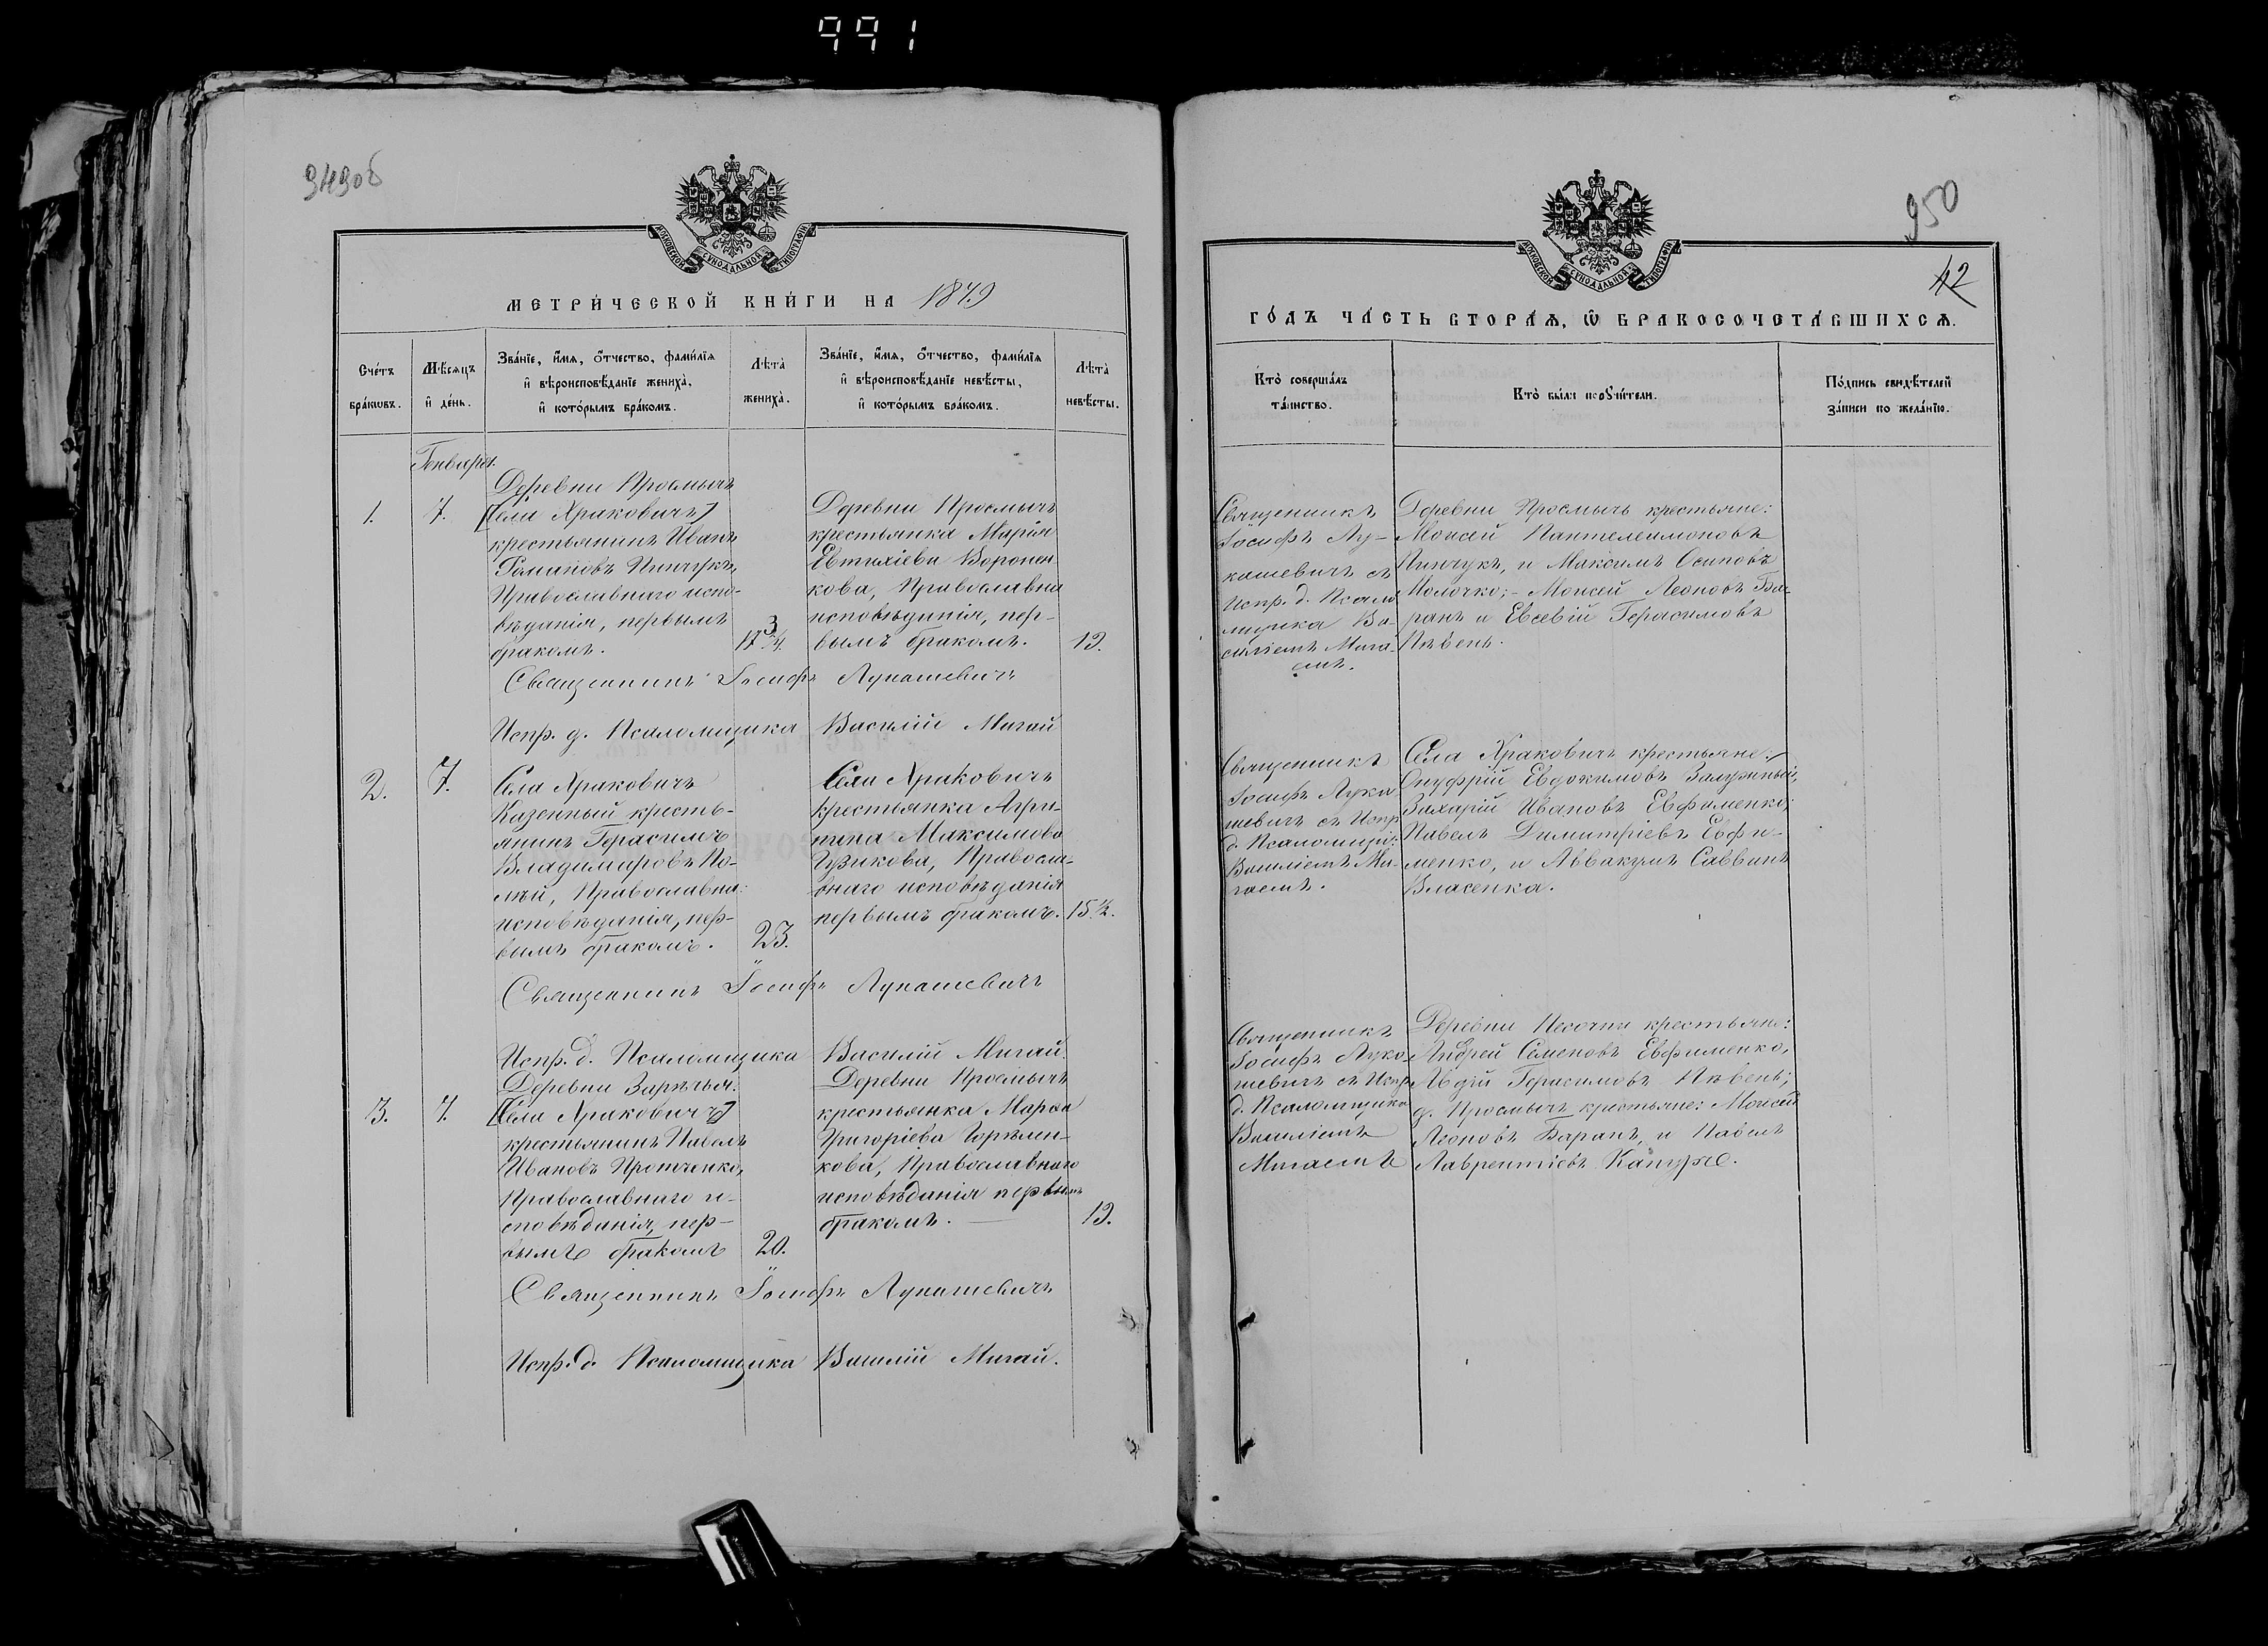 991
949об
МОСКОВСКОЙ СУНОДАЛЬНОЙ ТИПОГРАФІИ
МЕТРИ́ЧЕСКОЙ КНИ́ГИ НА 1879
Сче́тъ бра́ковъ.
Мѣ́сяцъ и҆ де́нь.
Зва́нїе, и҆́мя, ѻ҆́тчество, фами́лїя и҆ вѣроисповѣ́данїе жениха̀, и҆ кото́рымъ бра́комъ.
Лѣ́та жениха̀.
Зва́нїе, и҆́мя, ѻ҆́тчество, фами́лїя и҆ вѣроисповѣ́данїе невѣ́сты, и҆ кото́рымъ бра́комъ.
Лѣ́та невѣ́сты.
Генваря.
1.
7.
Деревни Просмычъ
[Села Храковичъ]
крестьянинъ Иванъ
Романовъ Пинчукъ,
Православнаго испо-
вѣданія, первымъ
бракомъ.
17 3/4.
Деревни Просмычъ
крестьянка Марія
Евтихіева Воронен-
кова, Православна
исповѣданія, пер-
вымъ бракомъ.
19.
Священникъ Іосифъ Лукашевичъ
Испр. д. Псаломщика Василій Мигай
2.
7.
Села Храковичъ
Казенный кресть-
янинъ Герасимъ
Владимировъ По-
мѣй, Православна:
исповѣданія, пер-
вымъ бракомъ.
23.
Села Храковичъ
крестьянка Агри-
пина Максимова
Гузикова, Правосла-
внаго исповѣданія
первымъ бракомъ.
15 1/2.
Священникъ Іосифъ Лукашевичъ
Испр. д. Псаломщика Василій Мигай.
3.
7.
Деревни Зарѣчья.
[Села Храковичъ]
крестьянинъ Павелъ
Ивановъ Протченко,
Православнаго и-
сповѣданія, пер-
вымъ бракомъ
20.
Деревни Просмычъ
крестьянка Марѳа
Григоріева Горѣлен-
кова, Православнаго
исповѣданія первымъ
бракомъ.
19.
Священникъ Іосифъ Лукашевичъ
Испр. д. Псаломщика Василій Мигай.
950
МОСКОВСКОЙ СУНОДАЛЬНОЙ ТИПОГРАФІИ
42
ГО́ДЪ ЧА́СТЬ ВТОРА́Я, Ѽ БРАКОСОЧЕТА́ВШИХСЯ.
Кто̀ соверша́лъ та́инство.
Кто̀ бы́ли порꙋчи́тели.
По́дпись свидѣ́телей за́писи по жела́нїю.
Священникъ
Іосифъ Лу-
кашевичъ съ
Испр. д. Псало
мщика Ва-
силіемъ Мига-
емъ.
Деревни Просмычъ крестьяне:
Моисей Пантелеимоновъ
Пинчукъ, и Максимъ Осиповъ
Молочко; - Моисей Леоновъ Ба-
ранъ и Евсевій Герасимовъ
Пѣвень.
Священникъ
Іосифъ Лука
шевичъ съ Испр
д. Псаломщи:
Василіемъ Ми-
гаемъ.
Села Храковичъ крестьяне:
Онуфрій Евдокимовъ Залужный,
Захарій Ивановъ Евфименко;
Павелъ Димитріевъ Евфи-
менко, и Аввакумъ Саввинъ
Власенка.
Священникъ
Іосифъ Лука
шевичъ съ Испр
д. Псаломщика
Василіемъ
Мигаемъ
Деревни Песочни крестьяне:
Андрей Семеновъ Евфименко,
Авдій Герасимовъ Пѣвень;
д. Просмычъ крестьяне: Моисей
Леоновъ Баранъ, и Павелъ
Лаврентіевъ